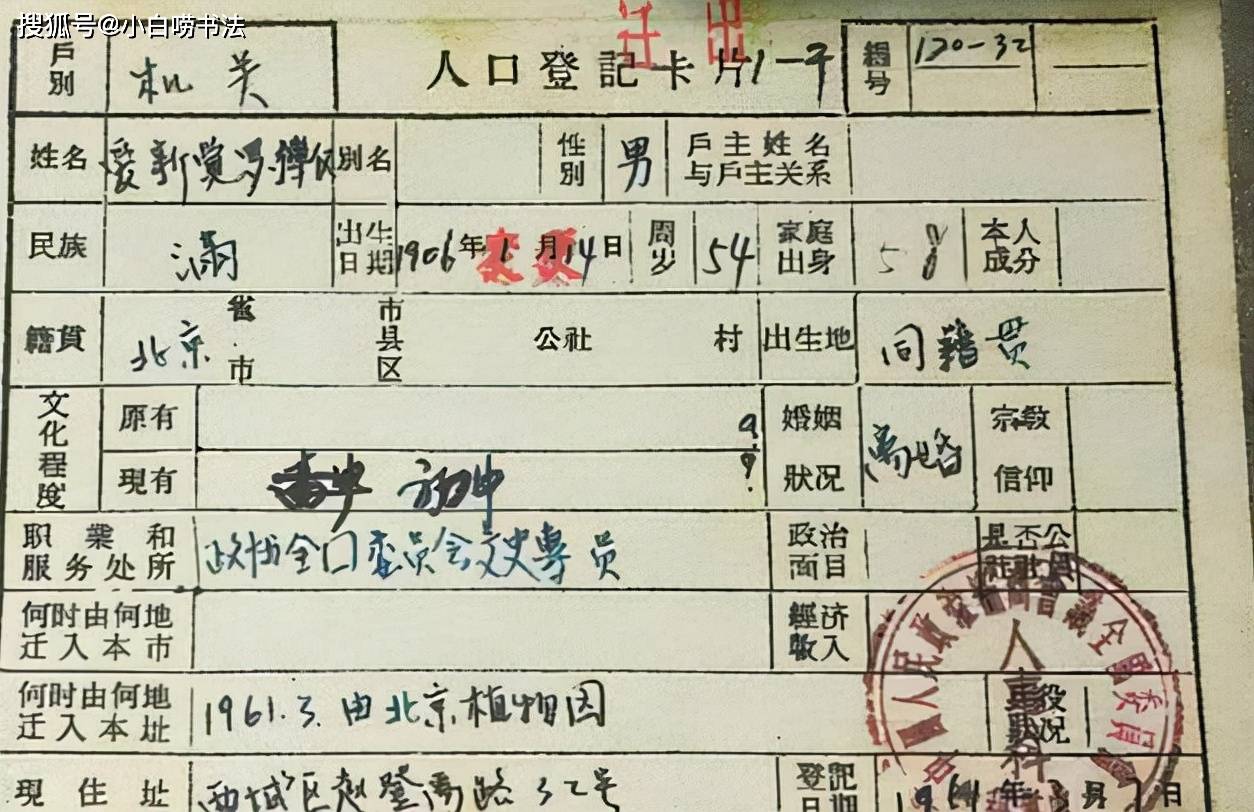 搜狐号@小白唠书法
迁出
户别 机关 人口登記卡片 1-7 編号 120-32
姓名 爱新觉罗·溥仪 别名 性别 男 戶主姓名与戶主关系
民族 满 出生日期 1906年1月14日 变更 周岁 54 家庭出身 本人成分
籍貫 北京 省市 市县区 公社 村 出生地 同籍贯
文化程度 原有 婚姻狀况 离婚 宗教信仰
現有 初中
职業和服务处所 政协全国委员会文史專员 政治面目 是否公社社員
何时由何地迁入本市 經济收入
何时由何地迁入本址 1961.3.由北京植物园 兵役状况
現住址 西城区赵登禹路32号 登記日期 1961年3月7日
中國人民政治協商會議全國委員會
人事科